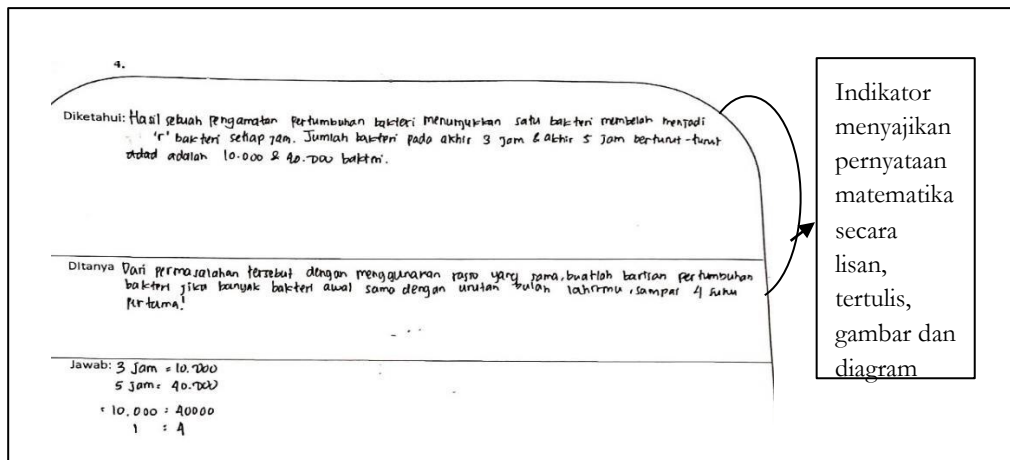 4.
Diketahui: Hasil sebuah pengamatan pertumbuhan bakteri menunjukkan satu bakteri membelah menjadi
'r' bakteri setiap jam. Jumlah bakteri pada akhir 3 jam & akhir 5 jam berturut-turut
adalah 10.000 & 40.000 bakteri.
Ditanya Dari permasalahan tersebut dengan menggunakan rasio yang sama, buatlah barisan pertumbuhan
bakteri jika banyak bakteri awal sama dengan urutan bulan lahirmu, sampai 4 suku
pertama!
Jawab: 3 Jam = 10.000
5 Jam = 40.000
= 10.000 : 40000
1 : 4
Indikator
menyajikan
pernyataan
matematika
secara
lisan,
tertulis,
gambar dan
diagram